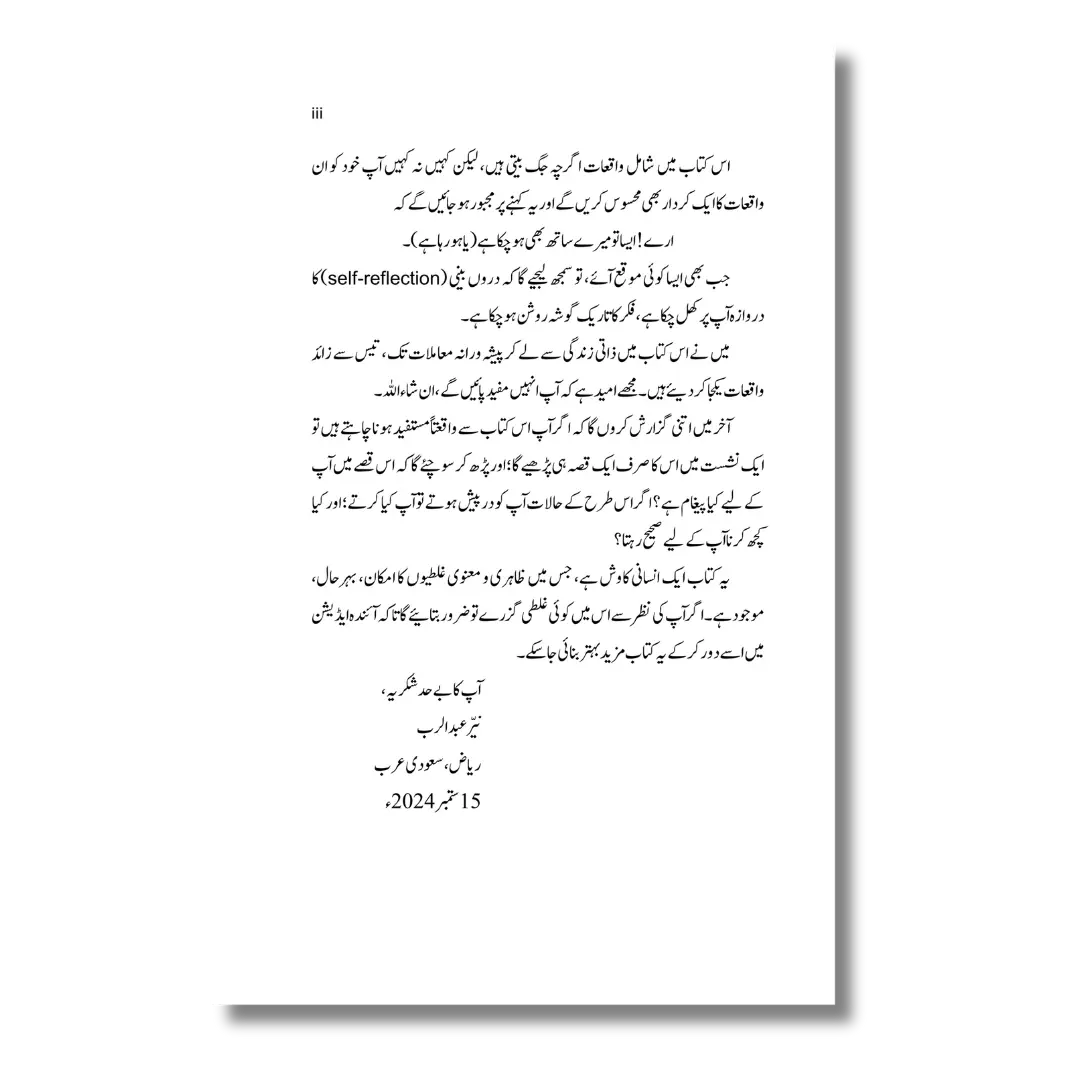 iii
اس کتاب میں شامل واقعات اگرچہ جگ بیتی ہیں، لیکن کہیں نہ کہیں آپ خود کو ان
واقعات کا ایک کردار بھی محسوس کریں گے اور یہ کہنے پر مجبور ہو جائیں گے کہ
ارے! ایسا تو میرے ساتھ بھی ہو چکا ہے (یا ہو رہا ہے)۔
جب بھی ایسا کوئی موقع آئے، تو سمجھ لیجیے گا کہ دروں بینی (self-reflection) کا
دروازہ آپ پر کھل چکا ہے، فکر کا تاریک گوشہ روشن ہو چکا ہے۔
میں نے اس کتاب میں ذاتی زندگی سے لے کر پیشہ ورانہ معاملات تک، تیس سے زائد
واقعات یکجا کر دیئے ہیں۔ مجھے امید ہے کہ آپ انہیں مفید پائیں گے، ان شاء اللہ۔
آخر میں اتنی گزارش کروں گا کہ اگر آپ اس کتاب سے واقعتاً مستفید ہونا چاہتے ہیں تو
ایک نشست میں اس کا صرف ایک قصہ ہی پڑھیے گا؛ اور پڑھ کر سوچئے گا کہ اس قصے میں آپ
کے لیے کیا پیغام ہے؟ اگر اس طرح کے حالات آپ کو درپیش ہوتے تو آپ کیا کرتے؛ اور کیا
کچھ کرنا آپ کے لیے صحیح رہتا؟
یہ کتاب ایک انسانی کاوش ہے، جس میں ظاہری و معنوی غلطیوں کا امکان، بہر حال،
موجود ہے۔ اگر آپ کی نظر سے اس میں کوئی غلطی گزرے تو ضرور بتائیے گا تاکہ آئندہ ایڈیشن
میں اسے دور کر کے یہ کتاب مزید بہتر بنائی جا سکے۔
آپ کا بے حد شکریہ،
نیّر عبد الرب
ریاض، سعودی عرب
15 ستمبر 2024ء